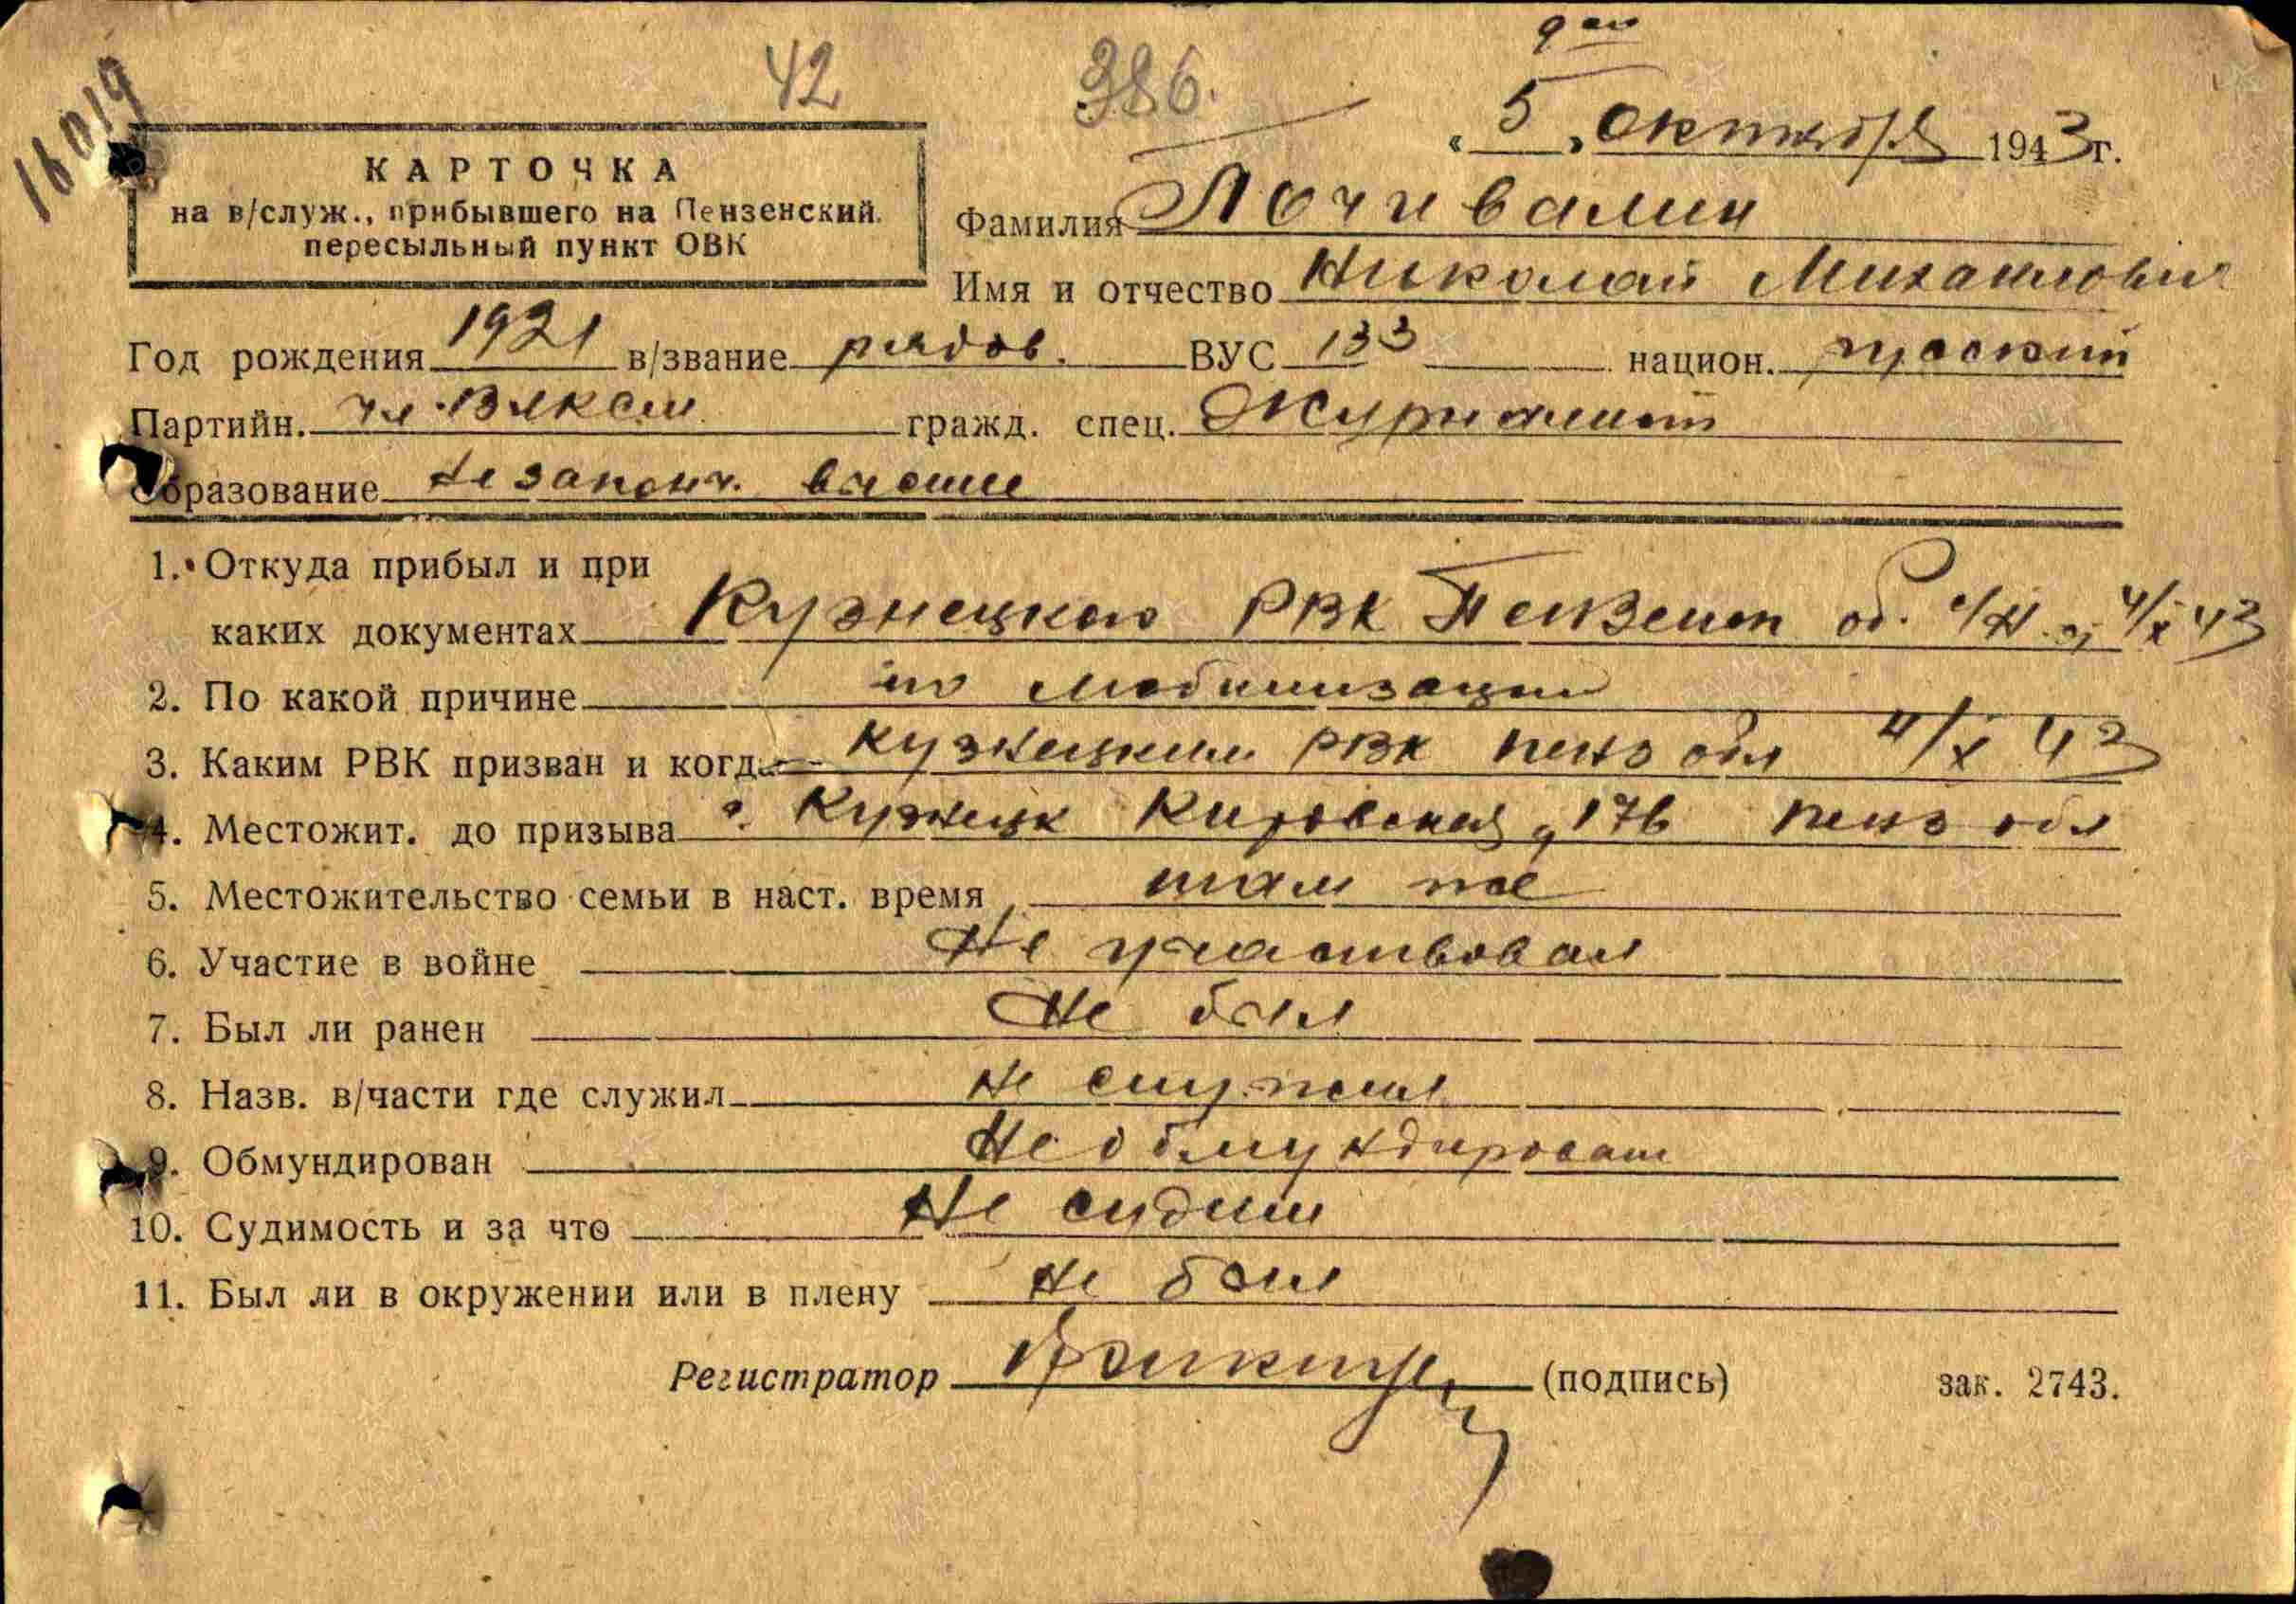 16019
42
386.
"5" октября 1943г.
КАРТОЧКА
на в/служ., прибывшего на Пензенский
пересыльный пункт ОВК
Фамилия Почивалин
Имя и отчество Николай Михайлович
Год рождения 1921 в/звание рядов. ВУС 133 национ. русский
Партийн. чл. ВЛКСМ гражд. спец. Журналист
Образование незаконч. высшее
1. Откуда прибыл и при
каких документах Кузнецкого РВК Пензенск об. 4/X 43
2. По какой причине по мобилизации
3. Каким РВК призван и когда Кузнецким РВК пенз обл 4/X 43
4. Местожит. до призыва г. Кузнецк Кировская, 176 пенз обл
5. Местожительство семьи в наст. время там же
6. Участие в войне Не участвовал
7. Был ли ранен Не был
8. Назв. в/части где служил Не служил
9. Обмундирован Не обмундирован
10. Судимость и за что Не судим
11. Был ли в окружении или в плену Не был
Регистратор (подпись) зак. 2743.